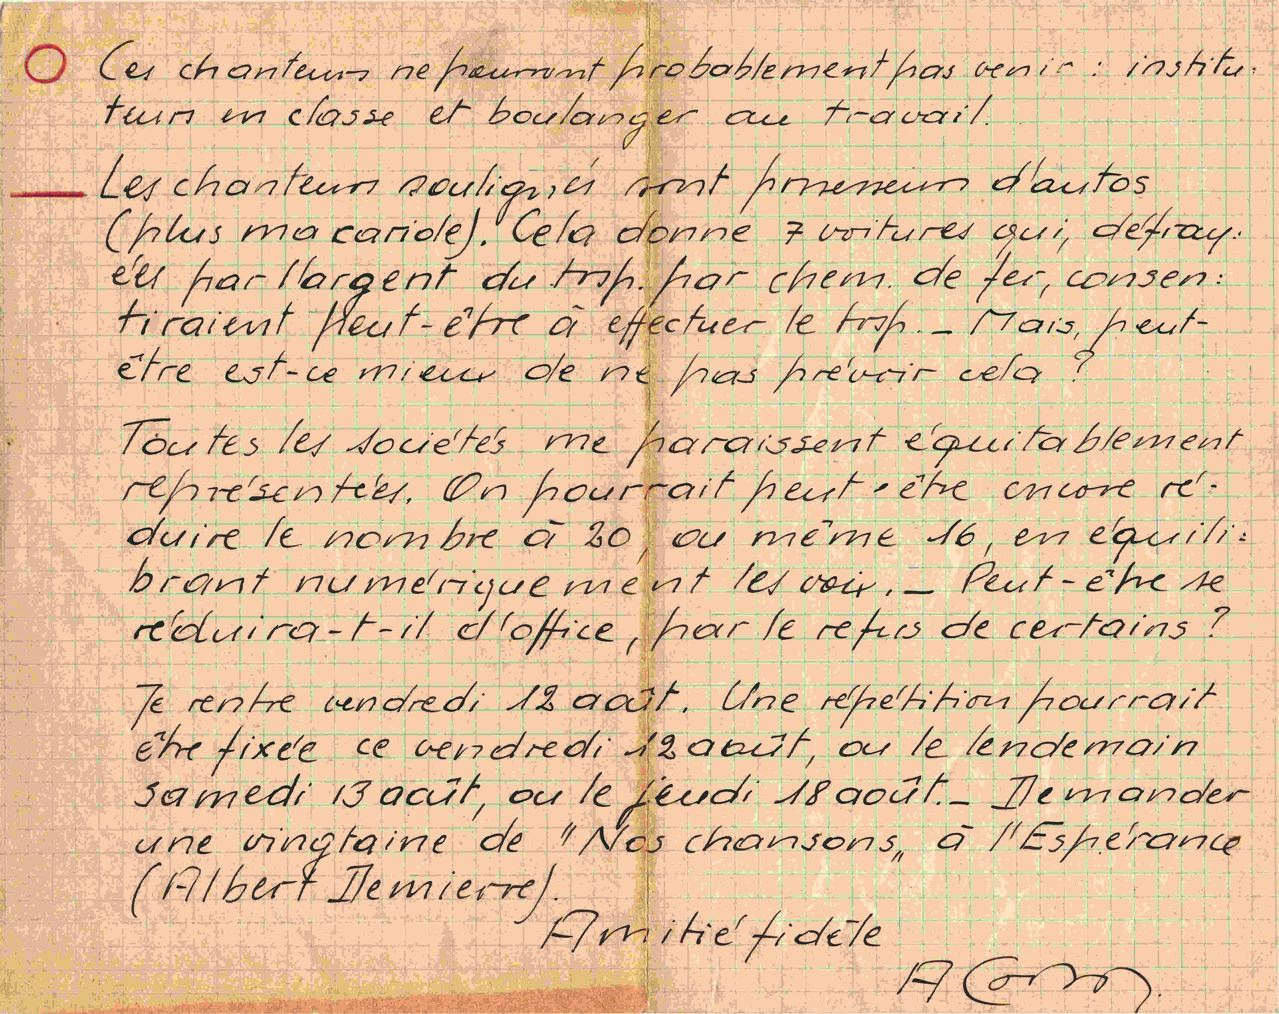 Ces chanteurs ne pourront probablement pas venir : institu-
teurs en classe et boulanger au travail.
Les chanteurs soulignés sont possesseurs d'autos
(plus ma cariole). Cela donne 7 voitures qui, défray-
ées par l'argent du trsp. par chem. de fer, consen-
tiraient peut-être à effectuer le trsp. - Mais, peut-
être est-ce mieux de ne pas prévoir cela ?
Toutes les sociétés me paraissent équitablement
représentées. On pourrait peut-être encore ré-
duire le nombre à 20, ou même 16, en équili-
brant numériquement les voix. - Peut-être se
réduira-t-il d'office, par le refus de certains ?
Je rentre vendredi 12 août. Une répétition pourrait
être fixée ce vendredi 12 août, ou le lendemain
samedi 13 août, ou le jeudi 18 août. - Demander
une vingtaine de "Nos chansons" à l'Espérance
(Albert Demierre).
Amitié fidèle
A